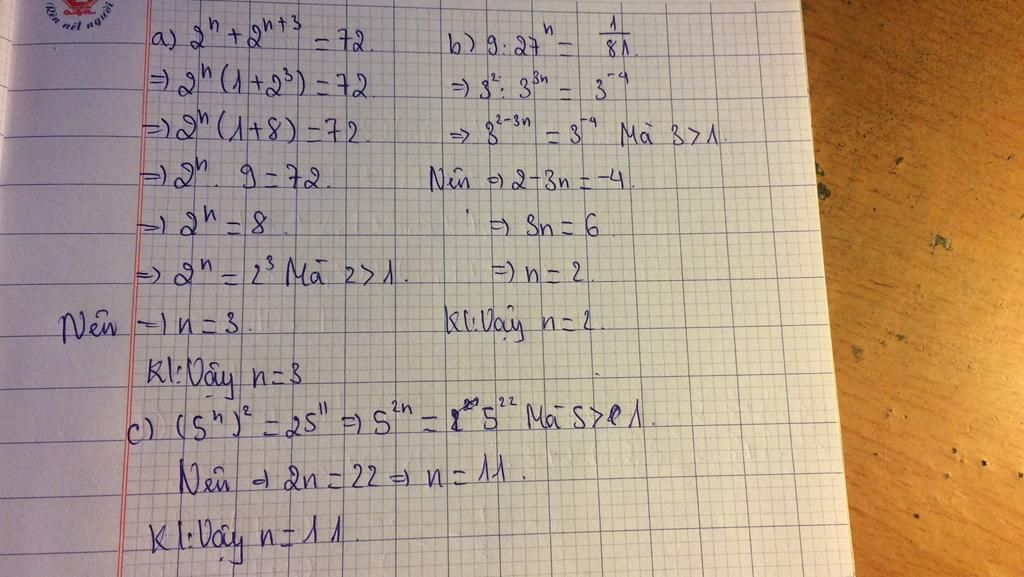 Rèn nét người
a) 2ⁿ + 2ⁿ⁺³ = 72.
=> 2ⁿ (1+2³) = 72
=> 2ⁿ (1+8) = 72.
=> 2ⁿ. 9 = 72.
=> 2ⁿ = 8
=> 2ⁿ = 2³ Mà 2>1.
Nên => n = 3.
Kl: Vậy n=3
b) 9:27ⁿ = 1/81
=> 3²: 3³ⁿ = 3⁻⁴
=> 3²⁻³ⁿ = 3⁻⁴ Mà 3>1.
Nên => 2-3n = -4.
=> 3n = 6.
=> n = 2.
Kl: Vậy n=2.
c) (5ⁿ)² = 25¹¹ => 5²ⁿ = 5²² Mà 5>1.
Nên => 2n = 22 => n = 11.
Kl: Vậy n = 11.